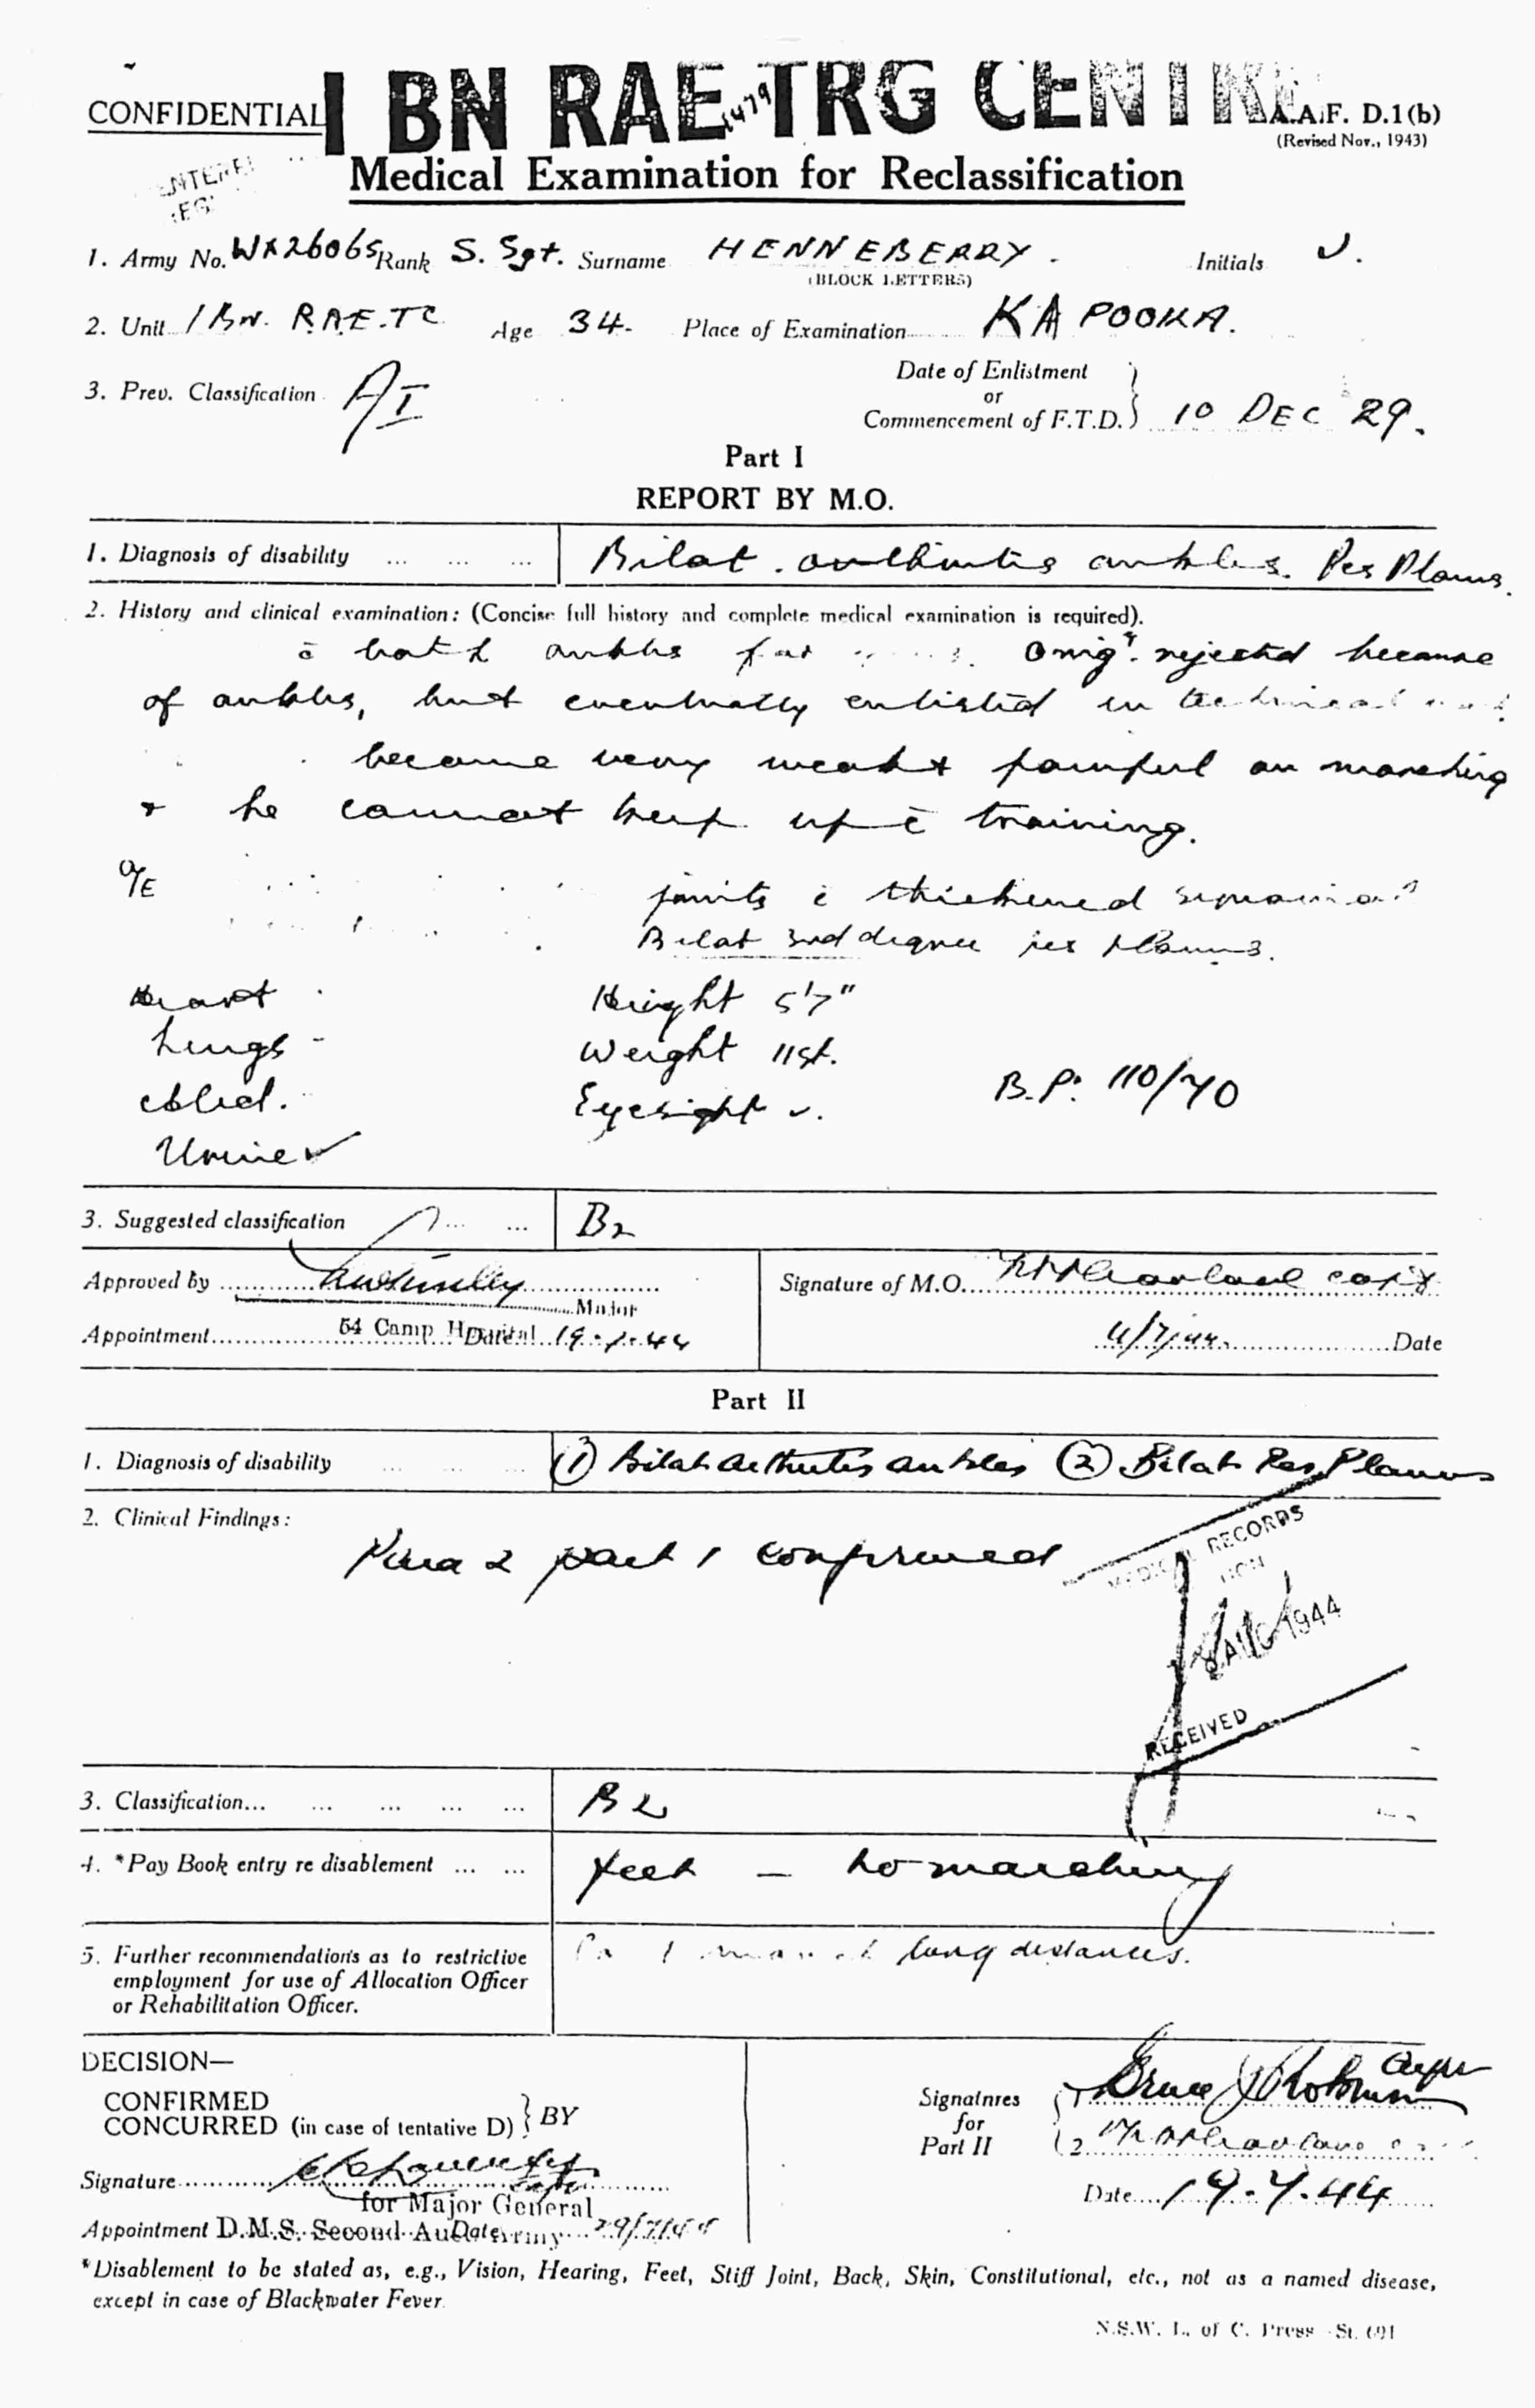 CONFIDENTIAL
1 BN RAE TRG CENTRE
1479
A.A.F. D.1(b)
(Revised Nov., 1943)
Medical Examination for Reclassification
1. Army No. WX26065 Rank S. Sgt. Surname HENNEBERRY. Initials J.
(BLOCK LETTERS)
2. Unit 1 BN. R.A.E.TC Age 34. Place of Examination KAPOOKA.
3. Prev. Classification A I
Date of Enlistment
or
Commencement of F.T.D. } 10 DEC 29.
Part I
REPORT BY M.O.
1. Diagnosis of disability ... ... ... Bilat. arthritis ankles. Pes Planus.
2. History and clinical examination: (Concise full history and complete medical examination is required).
c̄ both ankles for Orig. rejected because
of ankles, but eventually enlisted in technical
become very weak & painful on marching
& he cannot keep up c̄ training.
O/E joints c̄ thickened
Bilat 3rd degree pes planus.
Heart Height 5'7"
Lungs - Weight 11st.
Abd. Eyesight ✓. B.P. 110/70
Urine ✓
3. Suggested classification ... ... B2
Approved by Major
Signature of M.O.
Appointment 54 Camp Hospital Date 19.7.44
Date
Part II
1. Diagnosis of disability ... ... ... (1) Bilat arthritis ankles (2) Bilat Pes Planus
2. Clinical Findings:
Para 2 part 1 confirmed
MEDICAL RECORDS
1944
RECEIVED
3. Classification... ... ... ... ... B2
4. *Pay Book entry re disablement ... ... Feet — no marching
5. Further recommendations as to restrictive
employment for use of Allocation Officer
or Rehabilitation Officer.
long distances.
DECISION—
CONFIRMED
CONCURRED (in case of tentative D) } BY
Signatures
for
Part II
Signature
for Major General
Date 19.7.44
Appointment D.M.S. Second Aust Army Date 29/7/44
*Disablement to be stated as, e.g., Vision, Hearing, Feet, Stiff Joint, Back, Skin, Constitutional, etc., not as a named disease,
except in case of Blackwater Fever.
N.S.W. L. of C. Press—St. 691